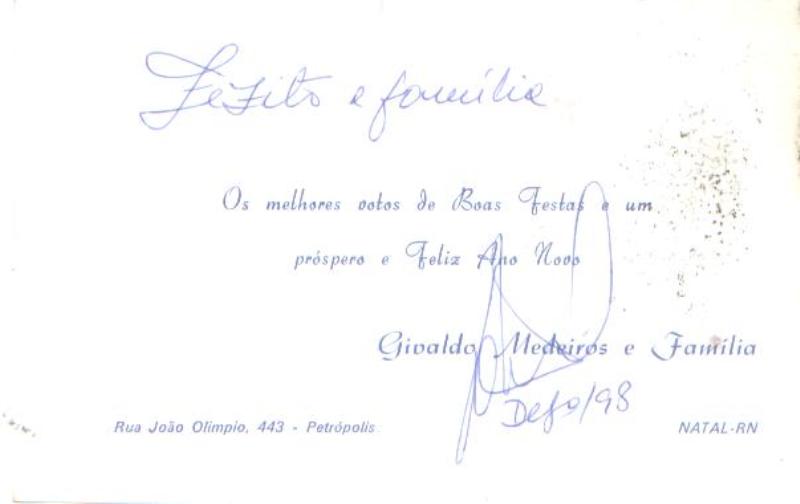 Zézito e família
Os melhores votos de Boas Festas e um
próspero e Feliz Ano Novo
Givaldo Medeiros e Família
Dezo/98
Rua João Olimpio, 443 - Petrópolis
NATAL-RN